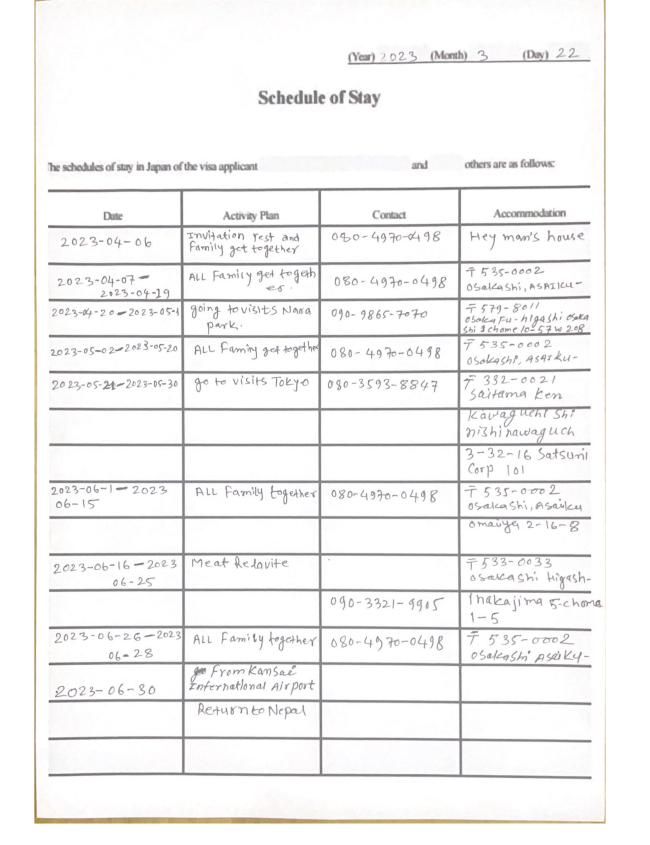 (Year) 2023 (Month) 3 (Day) 22
Schedule of Stay
The schedules of stay in Japan of the visa applicant and others are as follows:
Date Activity Plan Contact Accommodation
2023-04-06 Invitation rest and 080-4970-0498 Hey man's house
Family get together
2023-04-07- ALL Family get togeth 080-4970-0498 〒535-0002
2023-04-19 er. osakashi, ASAIKU-
2023-04-20-2023-05-1 going to visits Nara 090-9865-7070 〒579-8011
park. osaka Fu-higashi osaka
shi 1chome 10-57 w 208
2023-05-02-2023-05-20 ALL Faminy get together 080-4970-0498 〒535-0002
osakashi, ASAIKU-
2023-05-21-2023-05-30 go to visits Tokyo 080-3593-8847 〒 332-0021
Saitama Ken
Kawaguchi Shi
nishinawaguch
3-32-16 Satsuni
Corp 101
2023-06-1-2023 ALL Family together 080-4970-0498 〒535-0002
06-15 osakashi, Asaiku
omaiya 2-16-8
2023-06-16-2023 Meat Relavite 〒533-0033
06-25 osakashi Higash-
090-3321-9905 Inakajima 5-choma
1-5
2023-06-26-2023 ALL Family together 080-4970-0498 〒 535-0002
06-28 osakashi ASaiku-
From Kansai
2023-06-30 International Airport
Return to Nepal